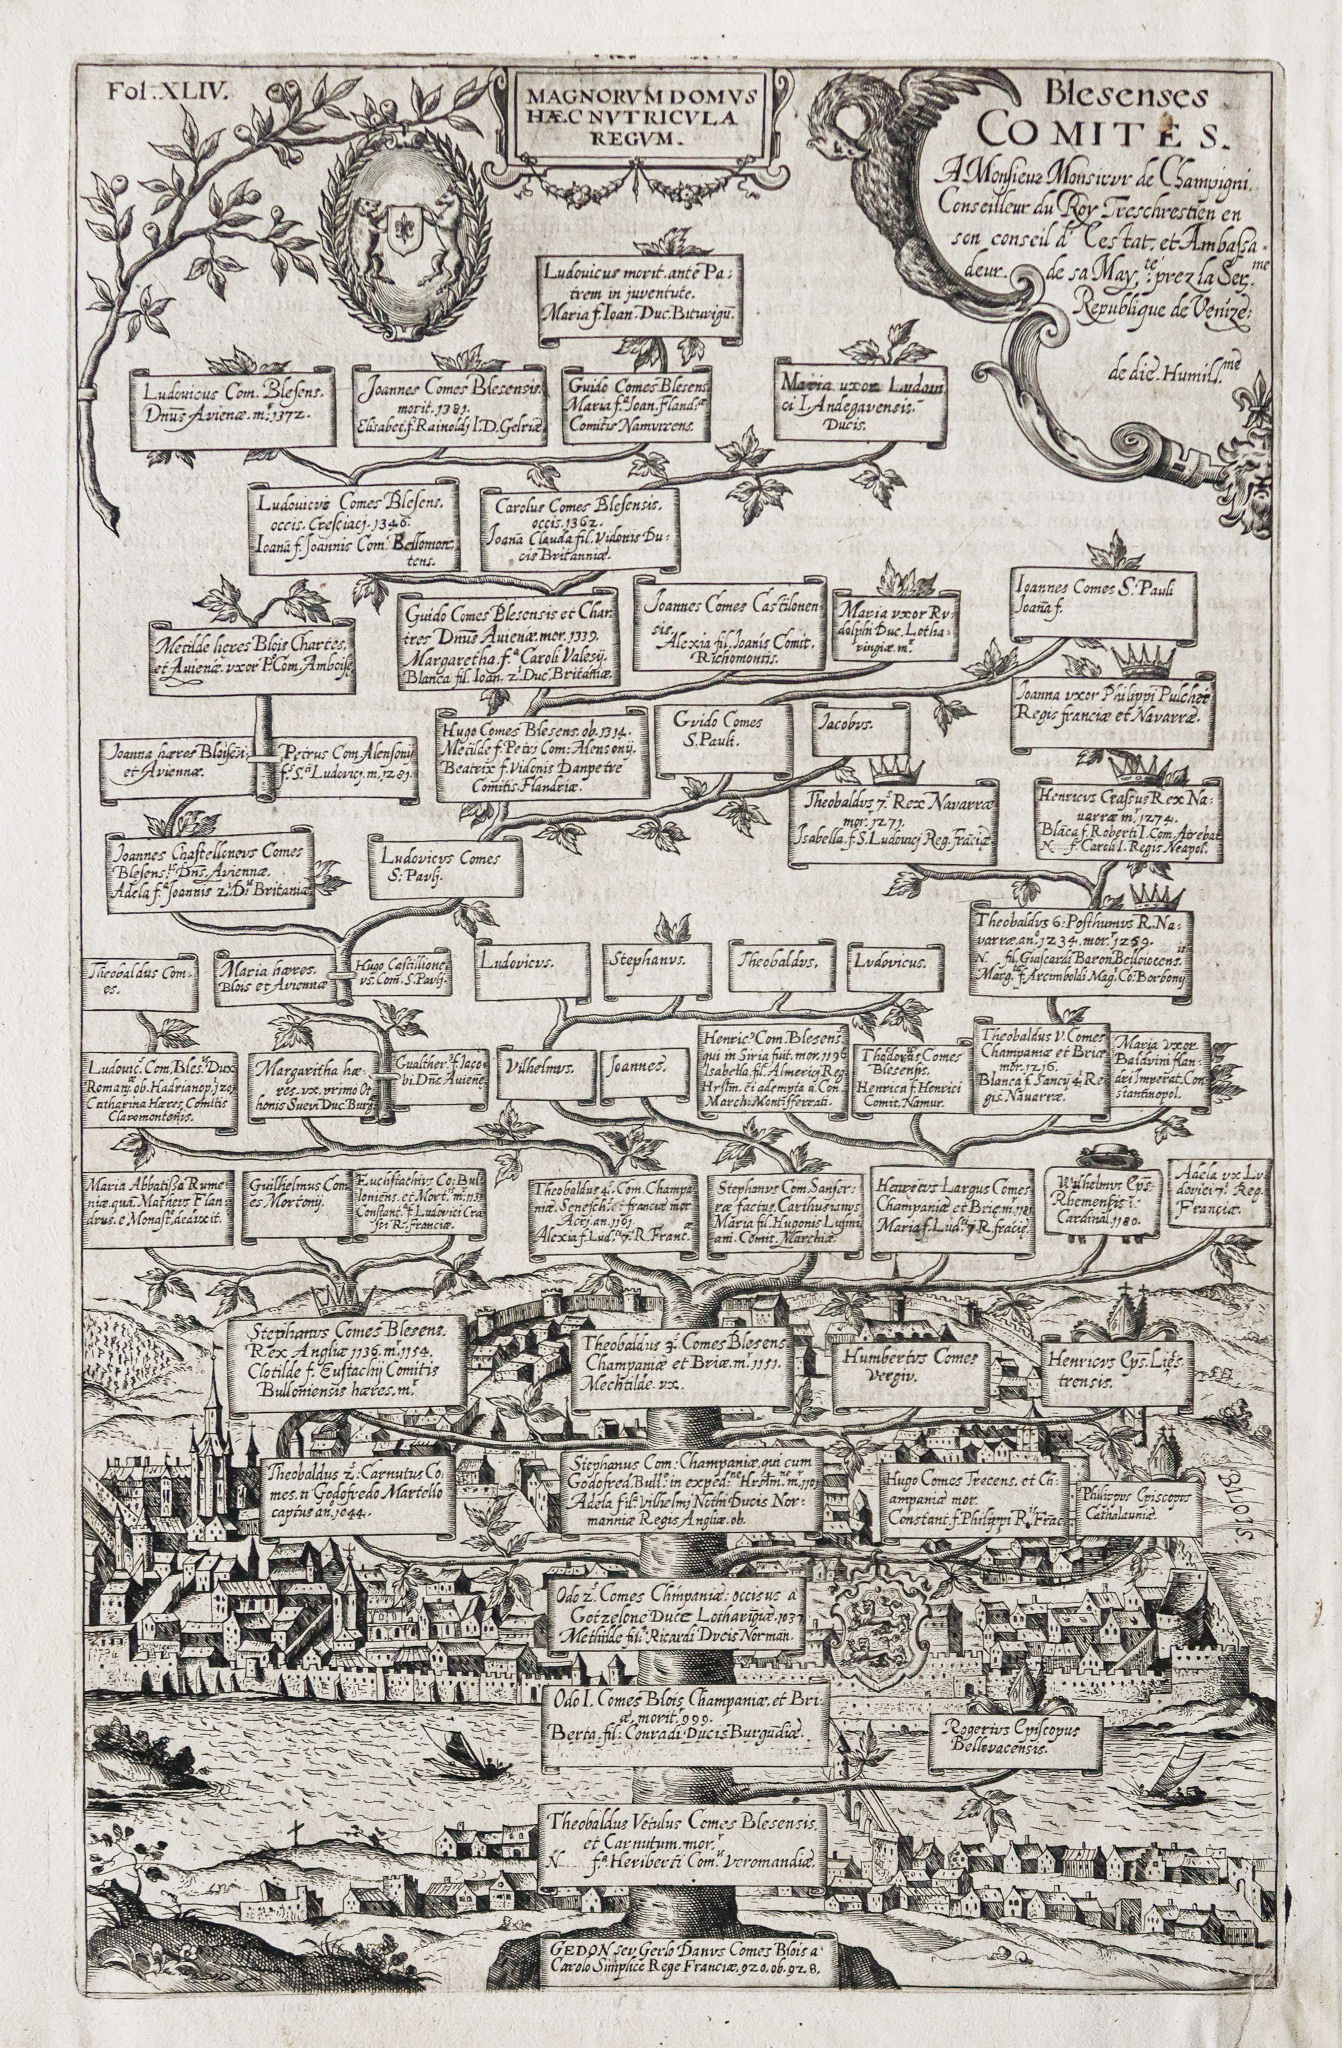 Fol: XLIV.
MAGNORVM DOMVS
HÆC NVTRICVLA
REGVM.
Blesenses
COMITES.
A Monsieur Monsieur de Champigni,
Conseilleur du Roy Treschrestien en
son conseil d'Cestat, et Ambassa-
deur de sa May.té prez la Ser.me
Republique de Venize:
de die. Humil.me
Ludovicus morit. ante Pa:
trem in juventute.
Maria f. Ioan. Duc. Biturigũ.
Ludovicus Com. Blesens.
Dnũs Avienæ. m.t 1372.
Joannes Comes Blesensis.
morit. 1381.
Elisabet. f. Rainoldj I. D. Gelriæ
Guido Comes Blesens.
Maria f.a Ioan. Fland.æ
Comitis Namurcens.
Maria uxor Ludovi
ci I. Andegavensis
Ducis.
Ludovicus Comes Blesens.
occis. Cresciacj. 1346.
Ioanã f. Joannis Com. Bellomon
tens.
Carolus Comes Blesensis.
occis. 1362.
Joana Clauda fil. Vidonis Du-
cis Britanniæ.
Metilde heres Blois Chartes.
et Avienæ. vxor P. Com. Amboise
Guido Comes Blesensis et Char
tres Dnũs Avienæ. mor. 1339.
Margaretha f.a Caroli Valesij.
Blanca fil. Ioan. 2. Duc. Britaniæ.
Joannes Comes Castilonen
sis.
Alexia fil. Joanis Comit.
Richomontis.
Maria vxor Ry-
dolphi Duc. Lotha-
ringiæ. m.t
Ioannes Comes S. Pauli
Joana f.
Joanna vxor Philippi Pulcher
Regis franciæ et Navarræ.
Joanna hæres Bloisen:
et Aviennæ.
Petrus Com. Alensonij
f.s S.ti Ludovicj. m. 1281.
Hugo Comes Blesens. ob. 1314.
Metilde f. Petrs Com: Alensonij.
Beatrix f. Vidonis Danpetre
Comitis Flandriæ.
Gvido Comes
S. Pauli.
Jacobvs.
Theobaldvs 7.s Rex Navarræ
mor. 1271.
Isabella. f. S. Ludovicj Reg. Frãciæ
Henricvs Crassvs Rex Na-
varræ m.t 1274.
Blãca f. Roberti I. Com. Atrebat
N. f. Caroli I. Regis Neapol.
Joannes Chastellenevs Comes
Blesens. Dns. Aviennæ.
Adela f.a Joannis 2. D. Britaniæ
Ludovicvs Comes
S. Pavlj.
Theobaldus Com-
es.
Maria hæres.
Blois et Aviennæ
Hugo Castillione
vs. Com. S. Pavlj.
Ludovicvs.
Stephanvs.
Theobaldvs.
Lvdovicus.
Theobaldvs 6. Posthumvs R. Na-
varræ. an. 1234. mor. 1259.
N. fil. Giascardi Baron Belloiocens.
Marg. f. Arcimboldi Mag. Co: Borbonij
Ludovic. Com. Bles. Dux
Roman. ob. Hadrianop. 1205
Catharina Hæres. Comitis
Claromontensis.
Margaritha hæ-
res. vx. primo Ot
honis Suevi Duc. Burg.
Gualther. f. Iaco
bi. Dns. Aviene
Vilhelmvs.
Joannes.
Henric. Com. Blesens.
qui in Siria fuit. mor. 1196
Isabella. fil. Almerici Reg
Hrsm. ei adempta a Con.
March. Montisferrati.
Thodoras Comes
Blesensis.
Henrica f. Henrici
Comit. Namur.
Theobaldus V. Comes
Champaniæ et Briæ
mor. 1216.
Blanca f. Sancij 4. Re
gis Navarræ.
Maria vxor
Baldvini flan-
dri Imperat. Con
stantinopol.
Maria Abbatissa Rume
niæ. quã. Matheus Flan-
drus. e Monast. deduxit.
Guilhelmus Com
es Mortonij.
Euchstachius Co: Bul-
loniens. et Mort. m. 1153
Constant. f. Ludovici Cra
ssi R. franciæ.
Theobaldus 4. Com. Champa
niæ. Senesch. et franciæ mor
Acrj. an. 1191.
Alexia f. Lud. 7. R. Franc.
Stephanvs Com. Sanser-
ræ factus Carthusianvs
Maria fil. Hugonis Lusini
ani Comit. Marchiæ.
Henricvs Largus Comes
Champaniæ et Briæ m. 1181
Maria f. Lud. 7 R. fraciæ.
Wilhelmvs Eps.
Rhemensis
Cardinal. 1180.
Adela vx Lv
dovici 7. Reg.
Franciæ.
Stephanvs Comes Blesens.
Rex Angliæ 1136. m. 1154.
Clotilde f. Eustachij Comitis
Bulloniensis hæres. m.t
Theobaldus 3. Comes Blesens
Champaniæ et Briæ. m. 1151.
Mechtilde. vx.
Humbertvs Comes
Vergiv.
Henricvs Eps. Lices
trensis.
Theobaldus 2. Carnutus Co
mes. a Godofredo Martello
captus an. 1044.
Stephanus Com. Champaniæ. qui cum
Godofred. Bull. in exped. Hrsm. m. 1101
Adela fil. Vilhelmj Nothi Ducis Nor-
manniæ Regis Angliæ. ob.
Hugo Comes Trecens. et Ch
ampaniæ mor.
Constant. f. Philippi R. Frac
Philippvs Episcopvs
Cathalauniæ.
BLLOIS
Odo 2. Comes Chmpaniæ: occisus a
Gotzelone Duce Lotharigiæ. 1037
Methilde fil: Ricardi Dvcis Norman.
Odo I. Comes Blois Champaniæ. et Bri-
æ morit. 999.
Berta. fil: Conradi Ducis Burgudiæ.
Rogerivs Episcopus
Bellovacensis.
Theobaldus Vetulus Comes Blesensis,
et Carnutum. mor.
N. f.a Heriberti Com. Veromandiæ.
GEDON sev Gerlo Danvs Comes Blois a
Carolo Simplice Rege Franciæ. 920. ob. 928.